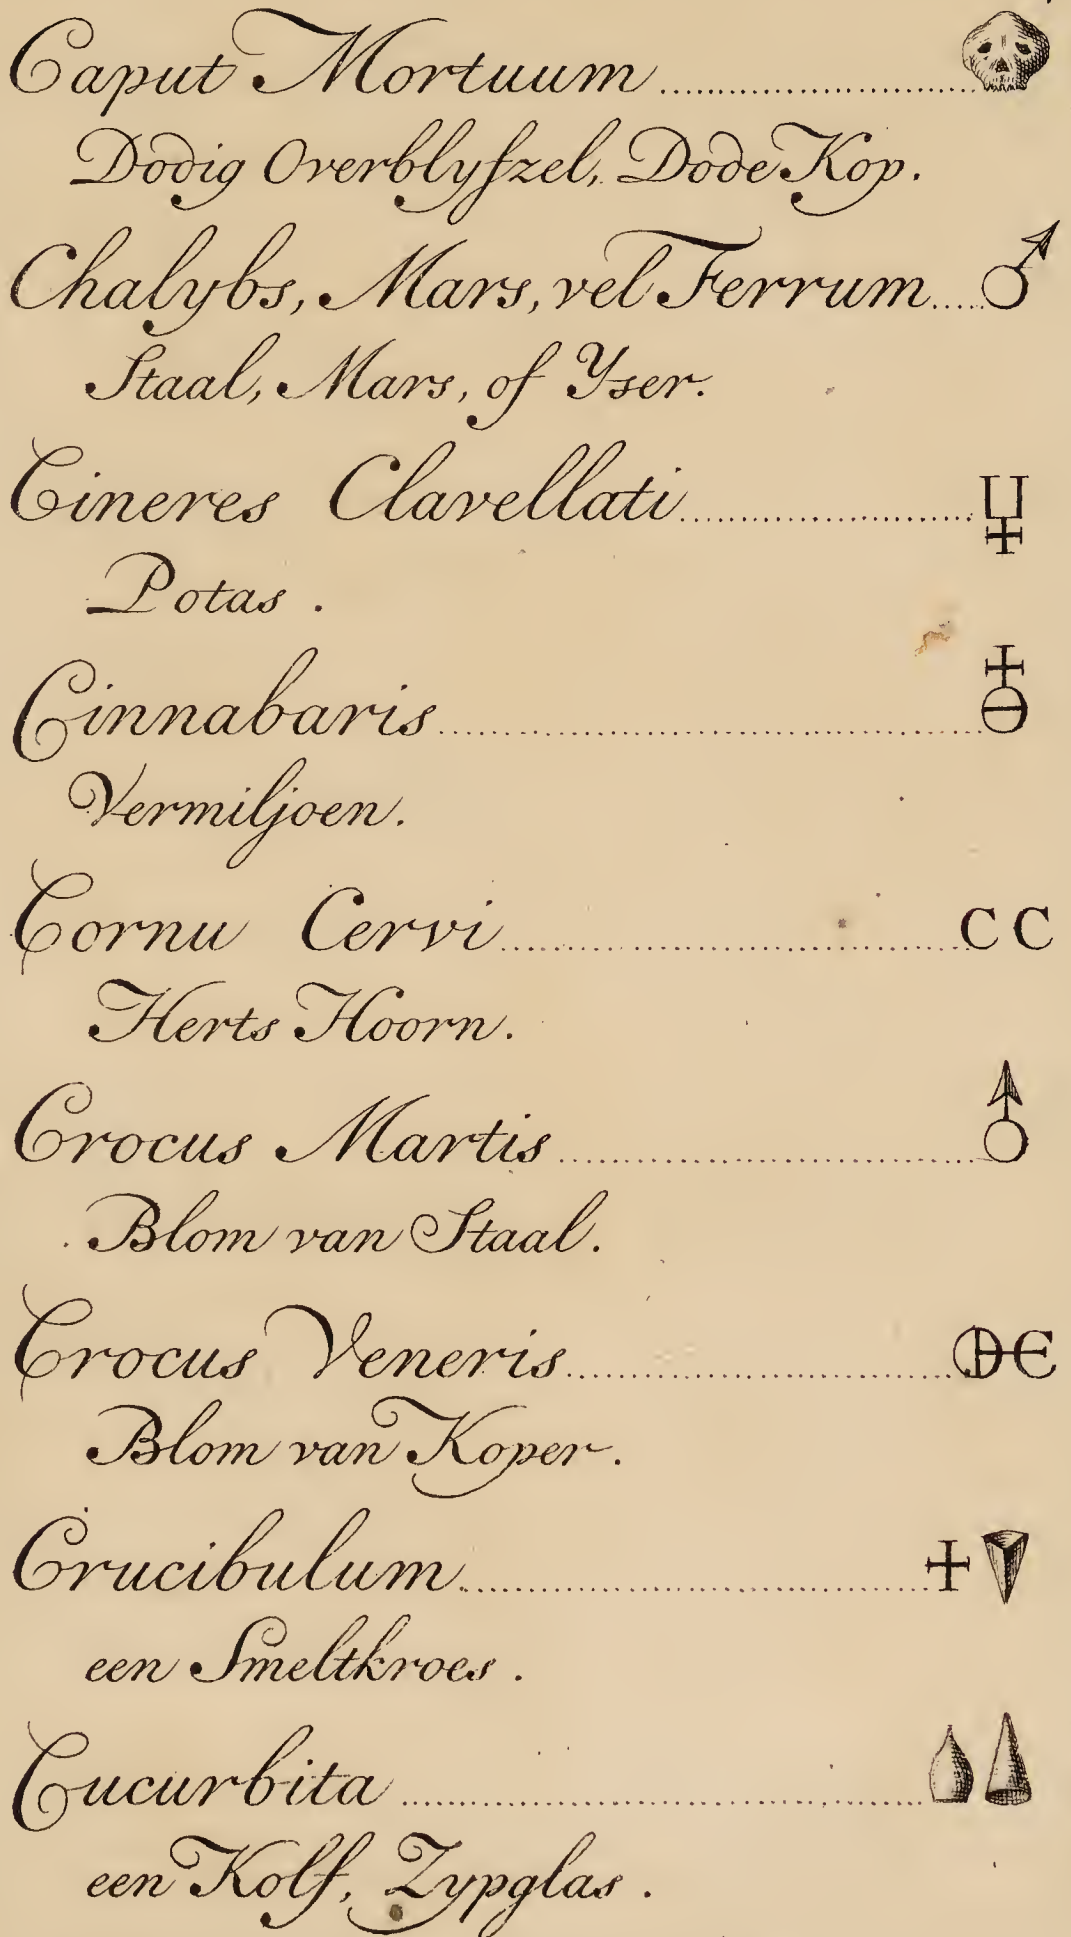 Caput Mortuum ........................
Dodig Overblyfzel, Dode Kop.
Chalybs, Mars, vel Ferrum.....♂
Staal, Mars, of Yser.
Cineres Clavellati........................
Potas .
Cinnabaris........................
Vermiljoen.
Cornu Cervi........................CC
Herts Hoorn.
Crocus Martis........................
Blom van Staal.
Crocus Veneris........................
Blom van Koper.
Crucibulum........................
een Smeltkroes .
Cucurbita ........................
een Kolf, Zypglas .